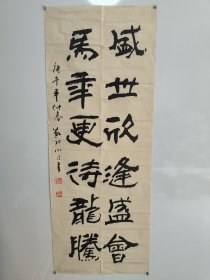 盛世欣逢盛會
馬年更待龍騰
庚午年仲春
書